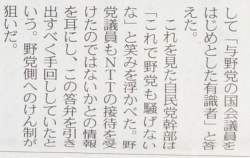 して「与野党の国会議員を
はじめとした有識者」と答
えた。
これを見た自民党幹部は
「これで野党も騒げない
な」と笑みを浮かべた。野
党議員もNTTの接待を受
けたのではないかとの情報
を耳にし、この答弁を引き
出すべく手回ししていたと
いう。野党側へのけん制が
狙いだ。